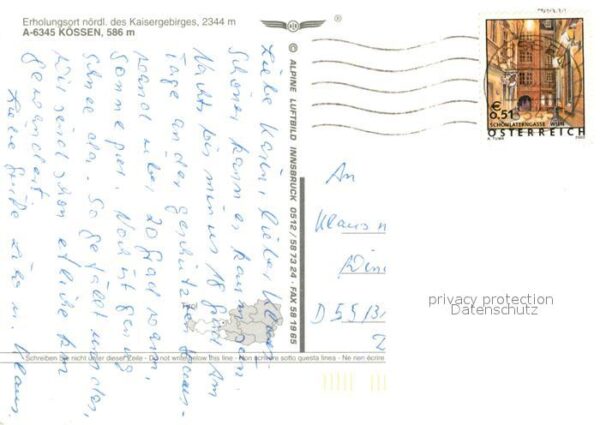 Erholungsort nördl. des Kaisergebirges, 2344 m
A-6345 KÖSSEN, 586 m
© ALPINE LUFTBILD INNSBRUCK 0512/58 73 24 · FAX 58 19 65
Liebe Karin, lieber
Schöner kann es kaum sein.
Nachts bis minus 18 Grad. Am
Tage an der geschützten Haus-
wand über 20 Grad warm,
Sonne pur. Noch ist genug
Schnee da. So gefällt uns das,
wir sind schon etliche km
gewandert.
Liebe Grüße u. Klaus.
Schreiben Sie nicht unter dieser Zeile - Do not write below this line - Non scrivere sotto questa linea - Ne rien écrire
KÖSSEN
€ 0,51
SCHÖNLATERNGASSE WIEN
ÖSTERREICH
An
Klaus
D 55
privacy protection
Datenschutz